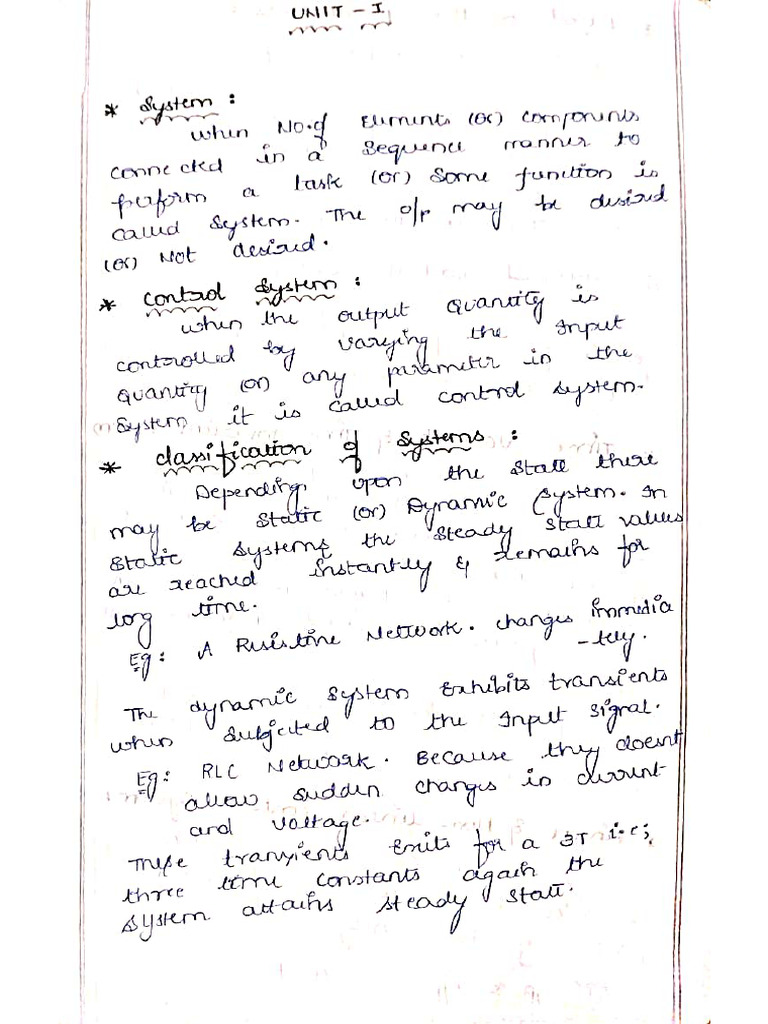 UNIT - I
* System :
When No. of Elements (or) components
connected in a sequence manner to
perform a task (or) some function is
called system. The o/p may be desired
(or) Not desired.
* Control System :
When the output Quantity is
controlled by varying the Input
Quantity (or) any parameter in the
System it is called control system.
* Classification of Systems :
Depending upon the state there
may be static (or) Dynamic System. In
static systems the steady state values
are reached instantly & remains for
long time.
Eg: A Resistive Network. changes immedia
-tely.
The dynamic system exhibits transients
when subjected to the Input signal.
Eg: RLC Network. Because they doesnt
allow sudden changes in current
and voltage.
These transients exits for a 3T i.e;
three time constants again the
system attains steady state.